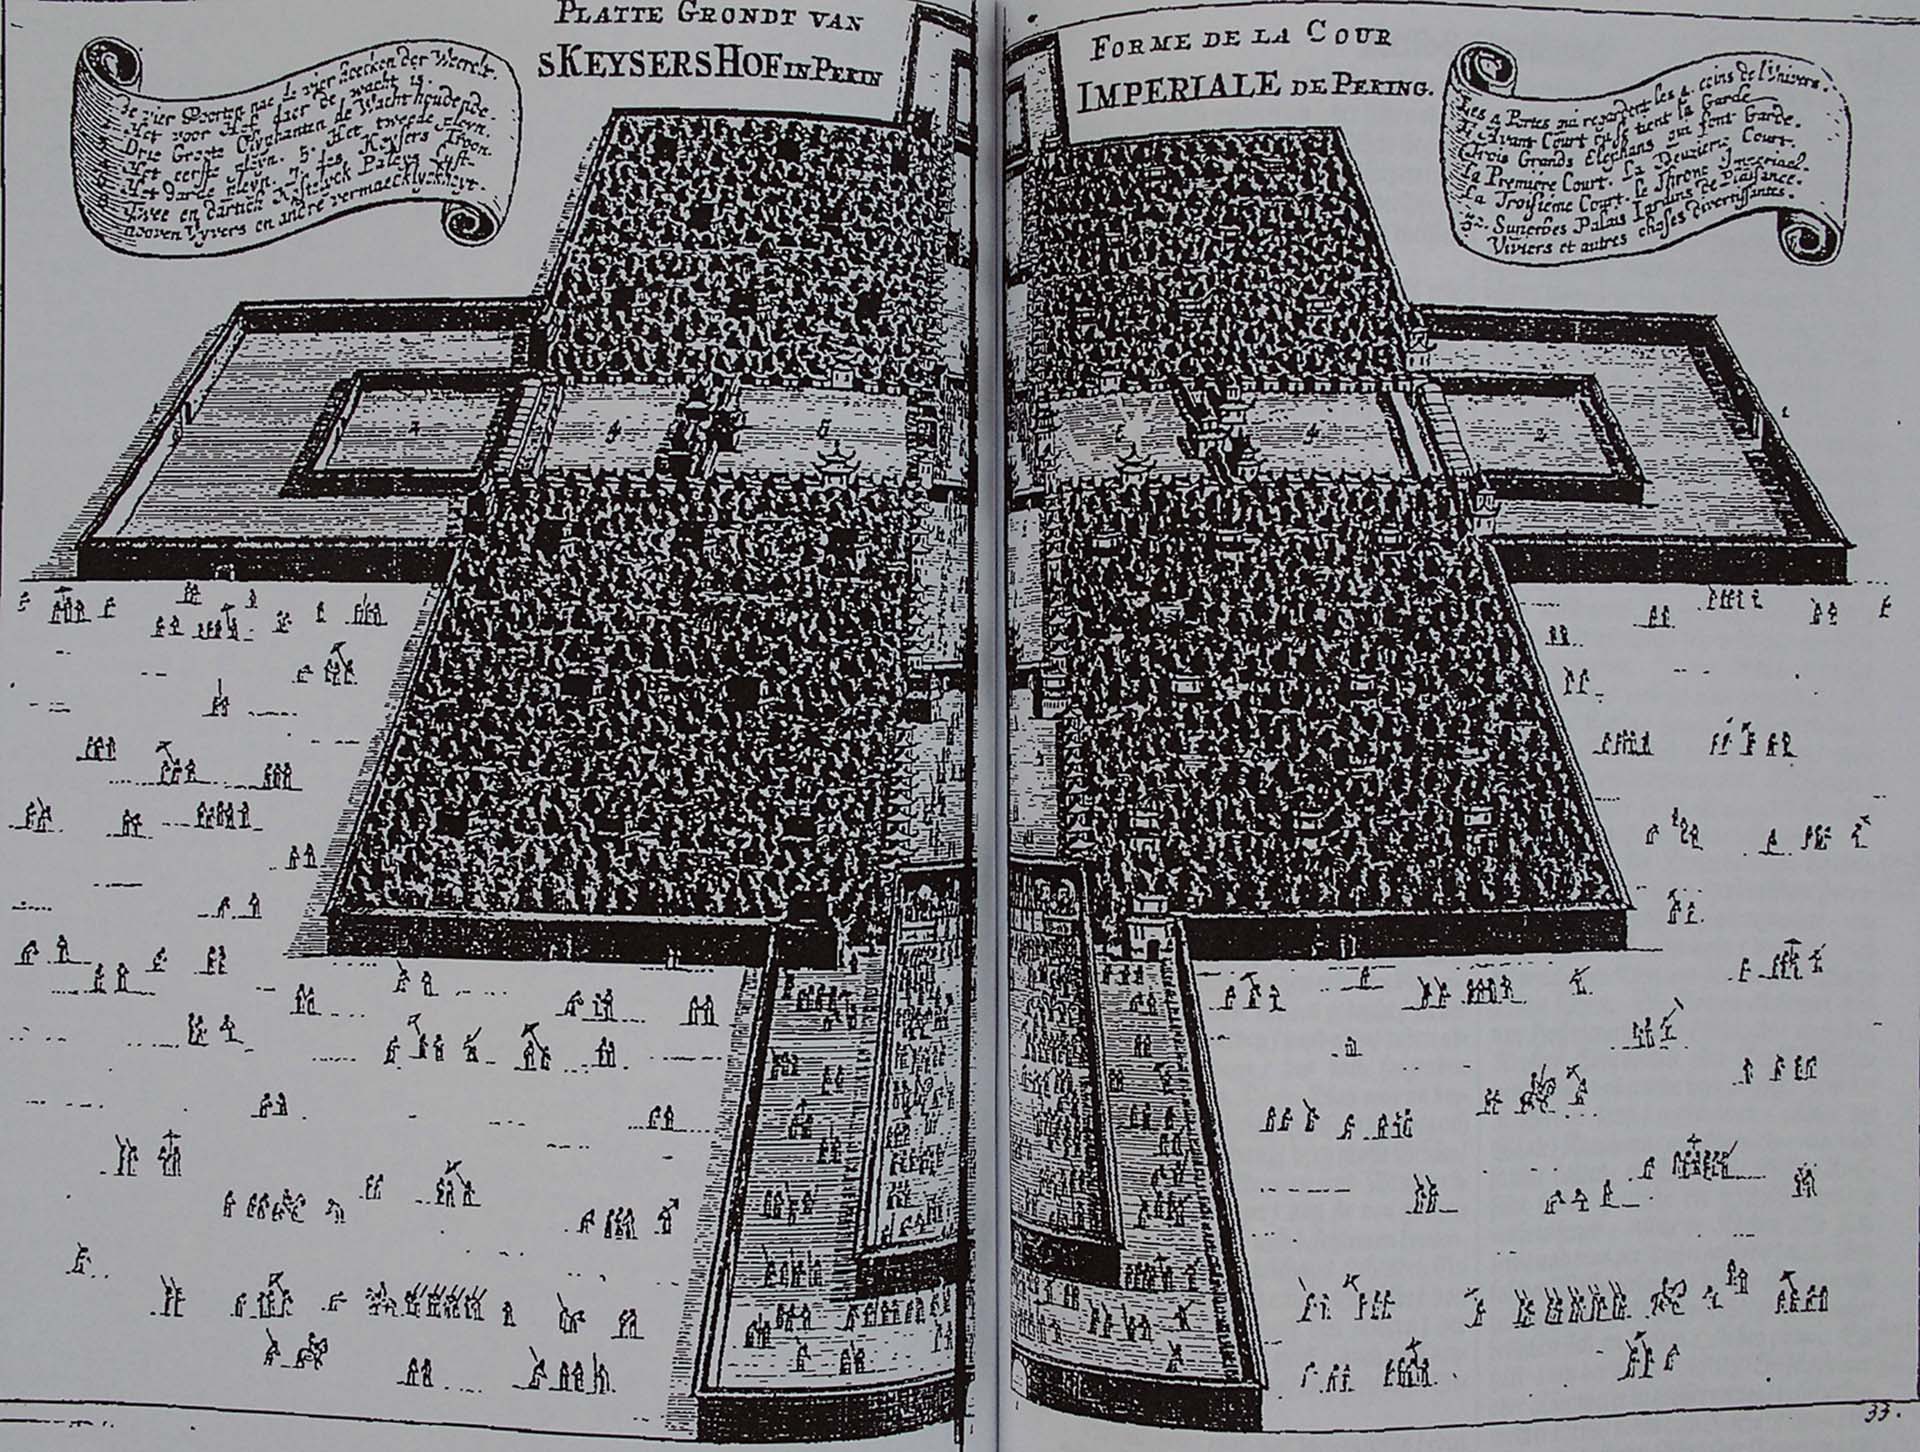 PLATTE GRONDT VAN
SKEYSERSHOF IN PEKIN
de vier Poorten nae de vier hoecken der Weerelt.
Het voor Hof daer de wacht is.
Drie Groote Olyphanten de Wacht houdende.
Het eerste pleyn. 5. Het tweede pleyn.
Het darde pleyn. 7. des Keysers Troon.
Twee en dartich Paleys Lust-
hooven Vyvers en andre vermaecklyckheyt.
FORME DE LA COUR
IMPERIALE DE PEKING.
Les 4 Portes qui regardent les 4 coins de l'Univers.
Avant Court ou se tient la Garde
Trois Grands Elephans qui font Garde.
La Premiére Court. La Deuzieme Court.
La Troisieme Court. Le Throne Imperial.
32. Superbes Palais Iardins de Plaisance.
Viviers et autres choses divertissantes.
4
4
2
33.